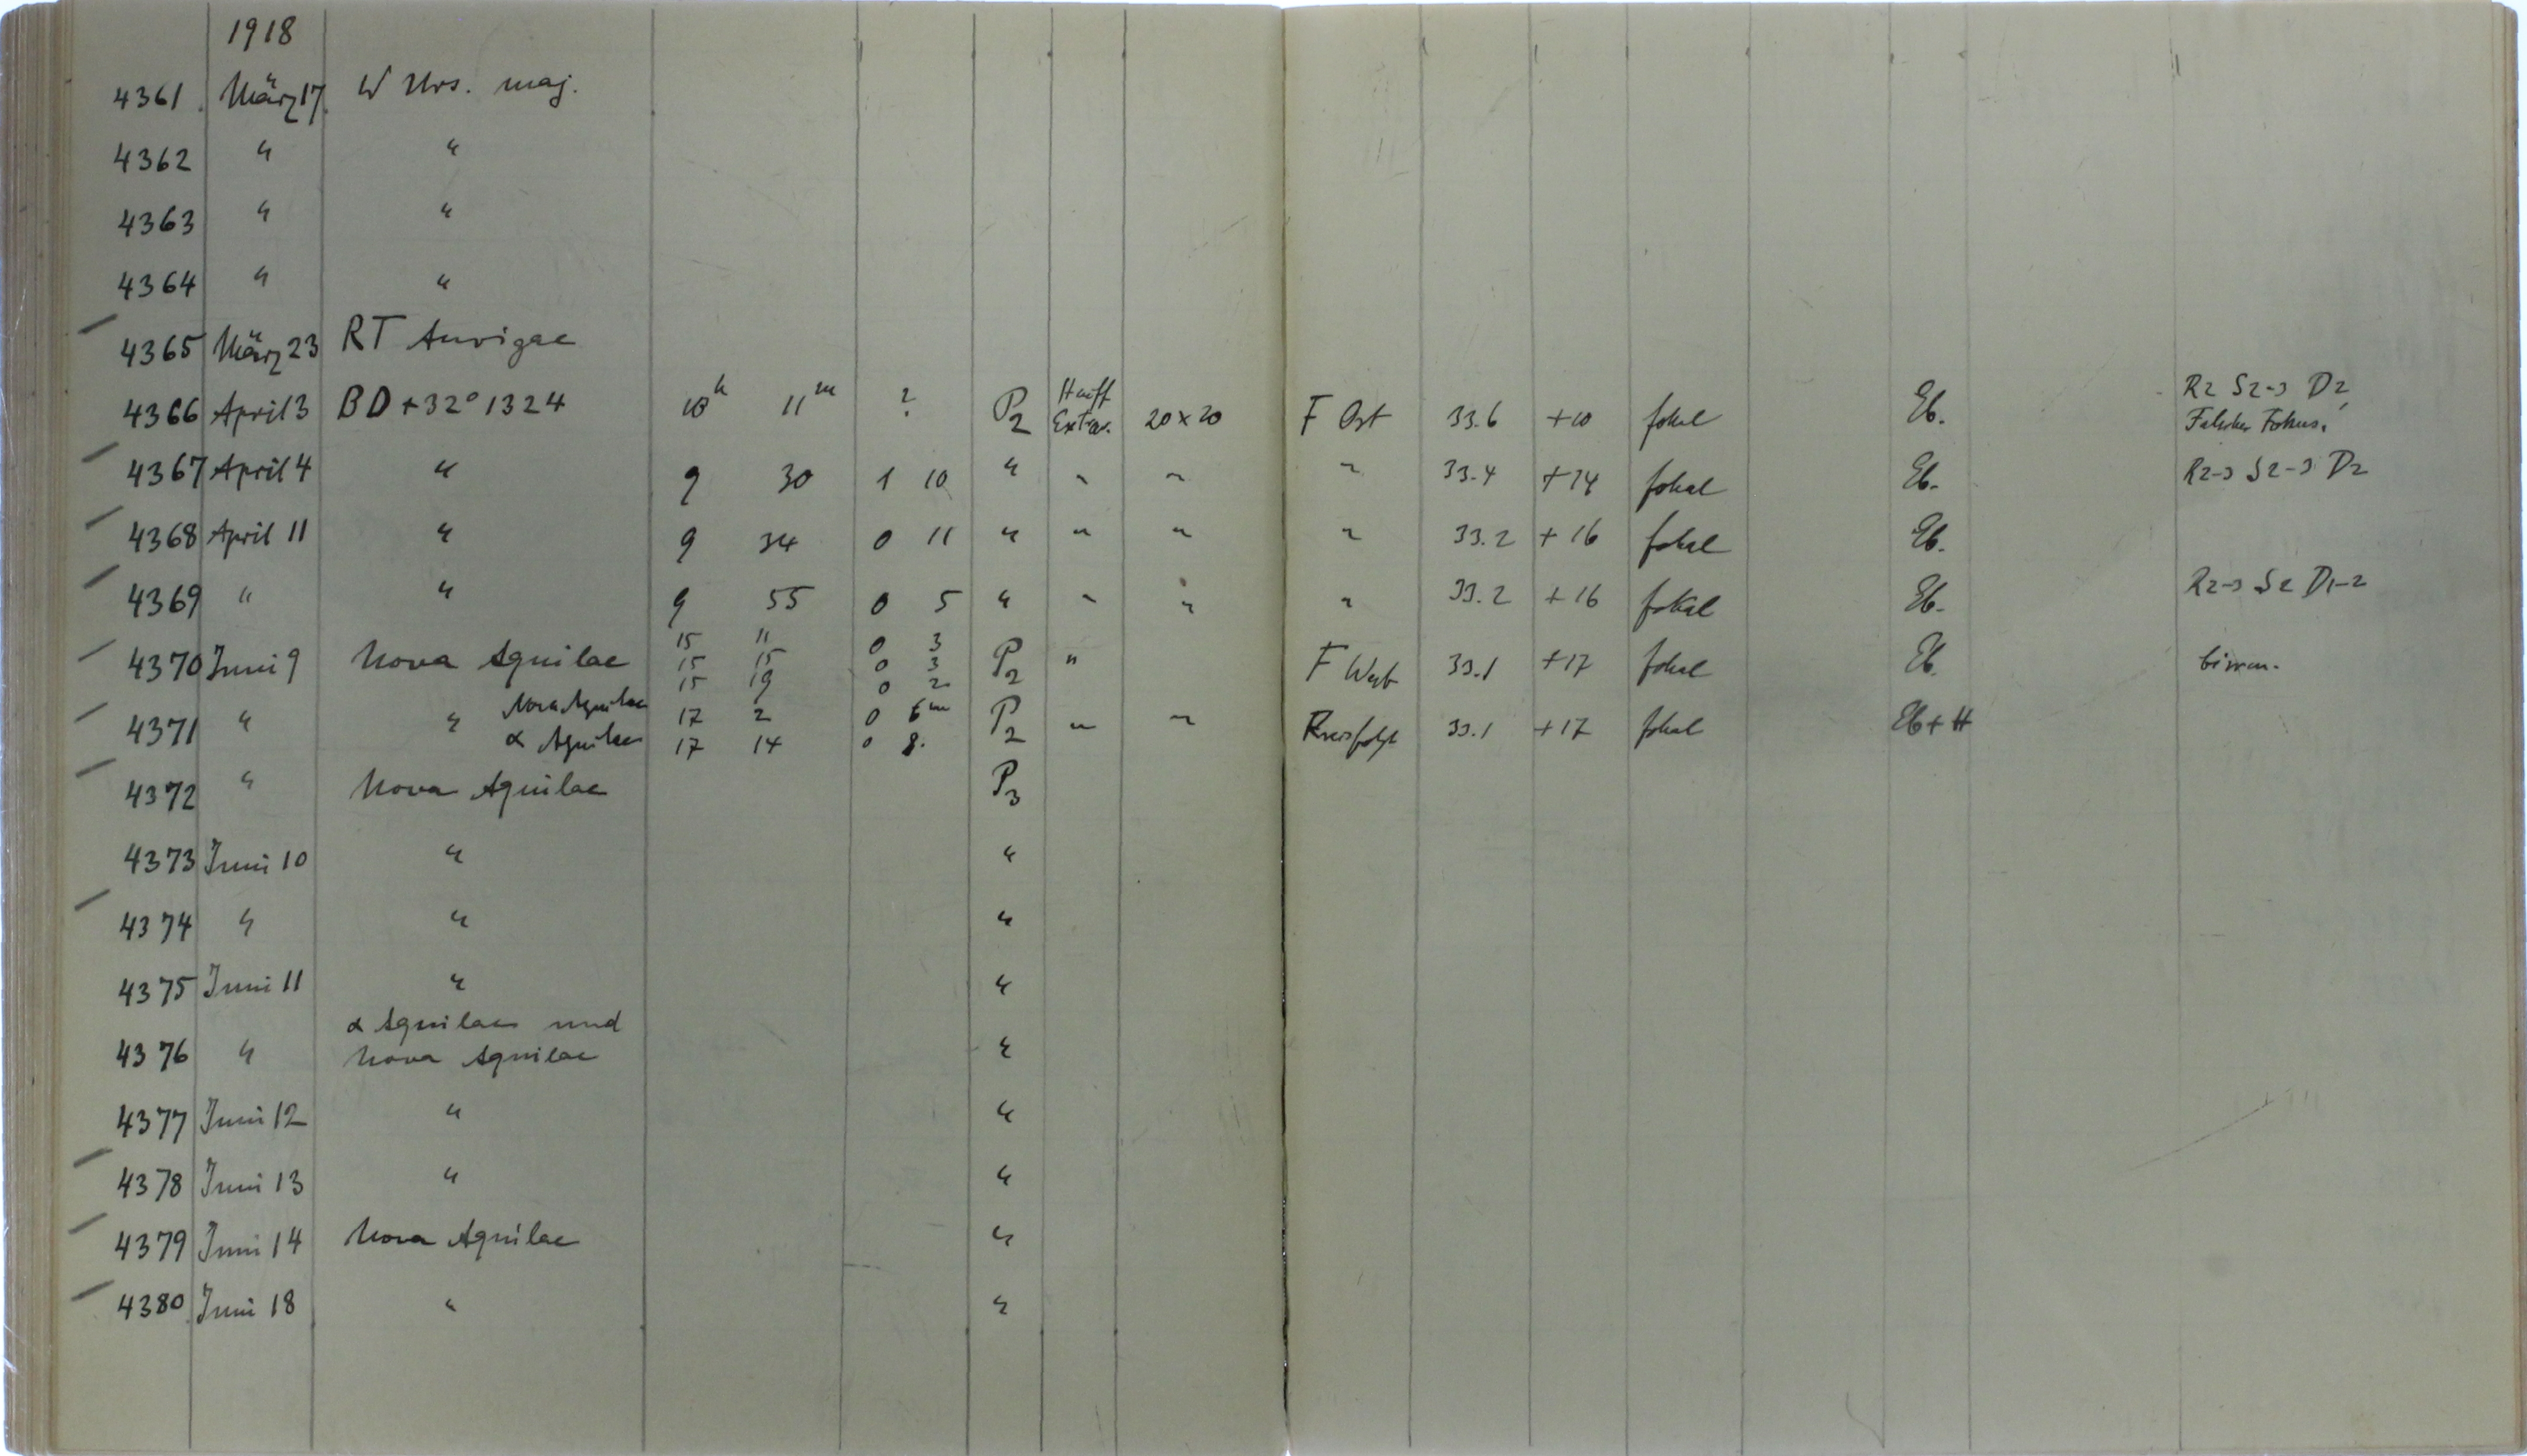 1918
4361 März 17 W Urs. maj.
4362 " "
4363 " "
4364 " "
4365 März 23 RT Aurigae
4366 April 3 BD +32° 1324 10h 11m ? P2 Hauff Extrar. 20×20 F Ost 33.6 +10 fokal Eb. R2 S2-3 D2, Falscher Fokus.
4367 April 4 " 9 30 1 10 " " " " 33.4 +14 fokal Eb. R2-3 S2-3 D2
4368 April 11 " 9 34 0 11 " " " " 33.2 +16 fokal Eb.
4369 " " 9 55 0 5 " " " " 33.2 +16 fokal Eb. R2-3 S2 D1-2
15 11 0 3
4370 Juni 9 Nova Aquilae 15 15 0 3 P2 " F West 33.1 +17 fokal Eb.
15 19 0 2
4371 " " Nova Aquilae 17 2 0 6m P2 " " 33.1 +17 fokal Eb + H
α Aquilae 17 14 0 8.
4372 " Nova Aquilae P3
4373 Juni 10 " "
4374 " " "
4375 Juni 11 " "
α Aquilae und
4376 " Nova Aquilae "
4377 Juni 12 " "
4378 Juni 13 " "
4379 Juni 14 Nova Aquilae "
4380 Juni 18 " "